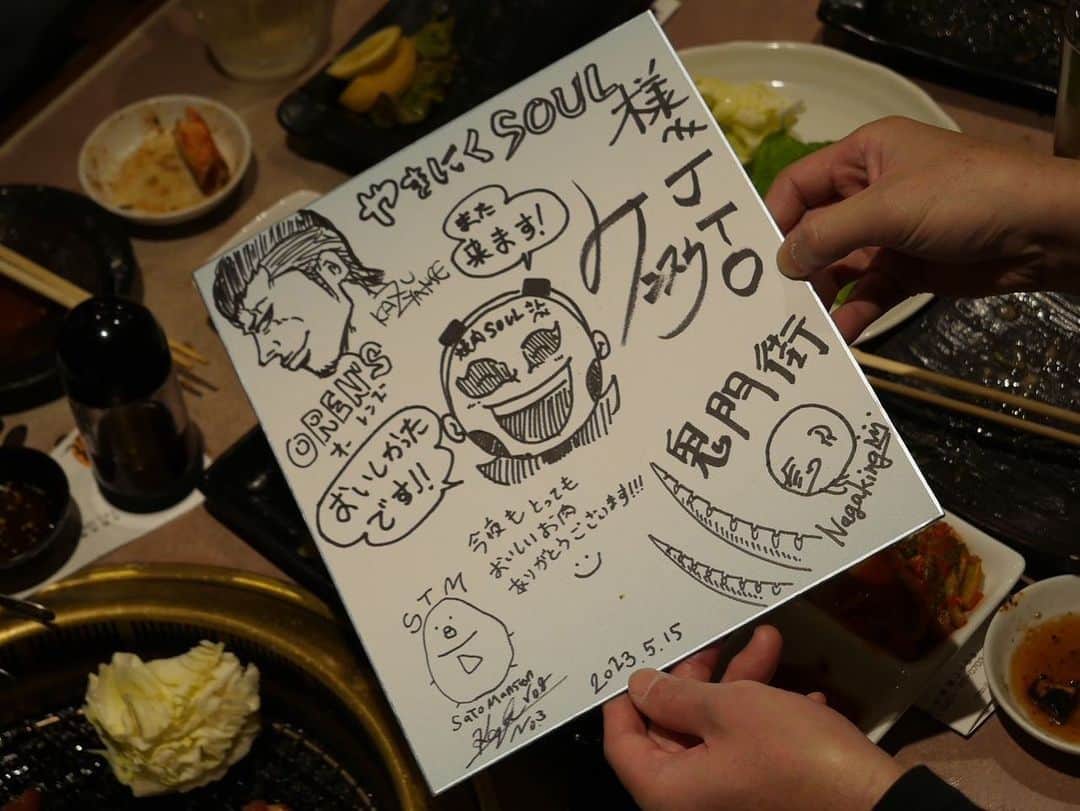 やきにくSOUL様
JTO
また
来ます!
KAZU
焼肉SOUL 渋
OREN'S
オーレンズ
おいしかった
です!!
鬼門街
Nagaking
今夜もとっても
おいしいお肉
ありがとうございます!!!
STM
Sato Mansion
No.3
2023.5.15